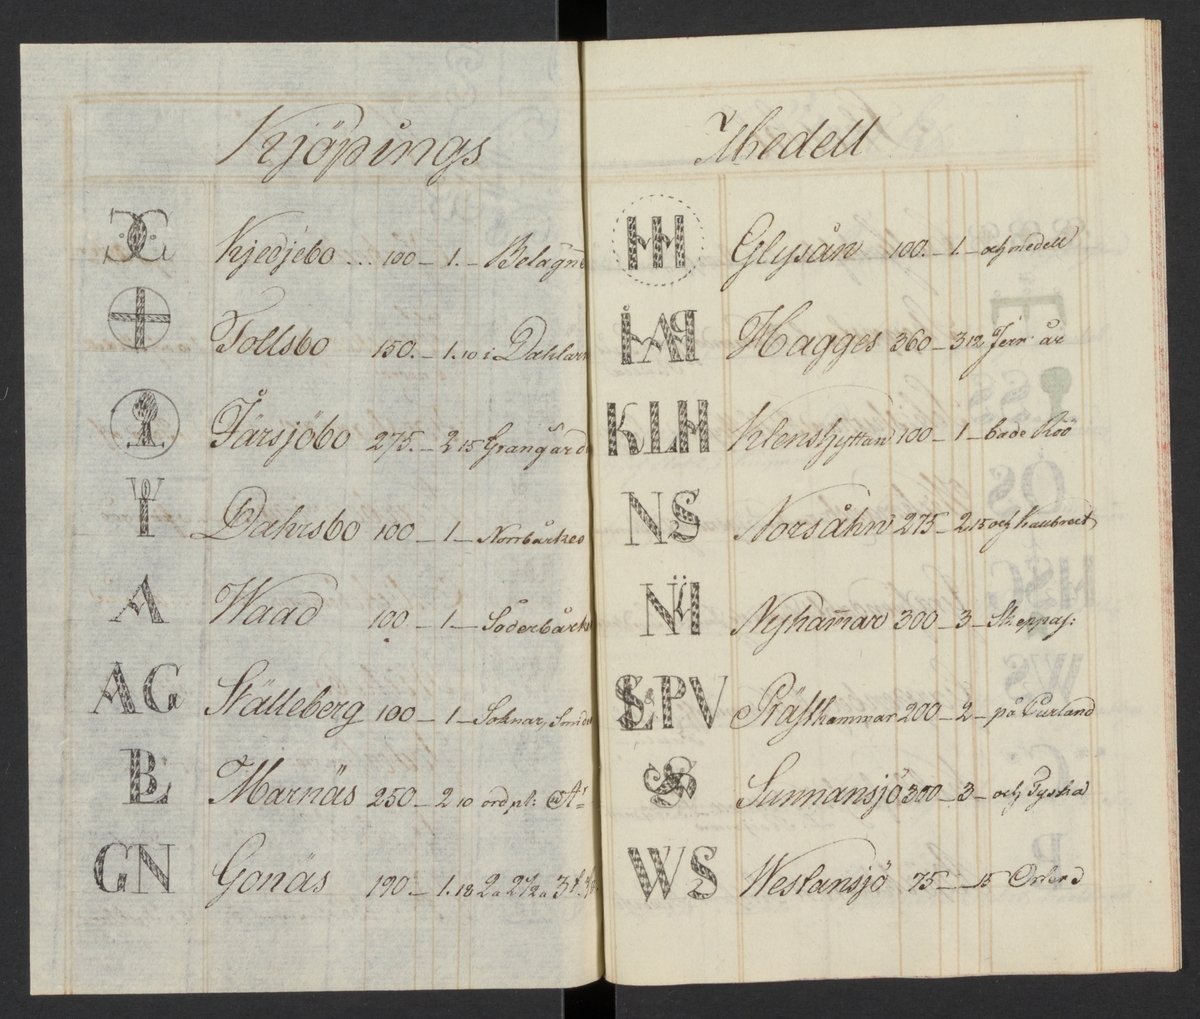 Kjöpings
Kjedjebo ... 100 – 1. – Belägn
Tollsbo 150. – 1. 10 i Dahlarn
Fårsjöbo 275. – 2 15 Grangärd
Dahrsbo 100 – 1 – Norrbärkeo
Waad 100 – 1 – Söderbärk
AG Ställeberg 100 – 1 – Soknar, Smid
Marnäs 250 – 2 10 ord pl:
GN Gonäs 190 – 1. 18 2 a 2 1/2 a 3
Glysån 100. – 1 – och medell
Hagges 360 – 3 12 Jern är
KLH Klenshyttan 100 – 1 – bade Roö
NS Norsåhn 275 – 2 15 och Kallbreckt
NH Nyhamar 300 – 3 – Skeppas:
SLPV Präfsthammar 200 – 2 – på Curland
Sunnansjö 300 – 3 – och Tyska
WS Westansjö 75 – 15